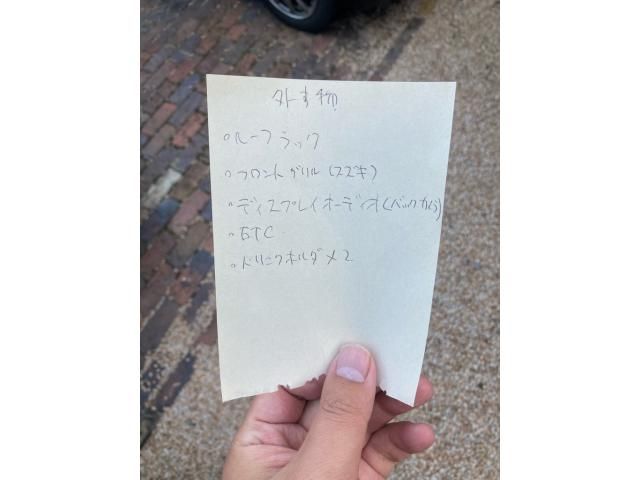 外す物
。ルーフラック
。フロントグリル(スズキ)
。ディスプレイオーディオ(バックカメラ)
。ETC
。ドリンクホルダ×2